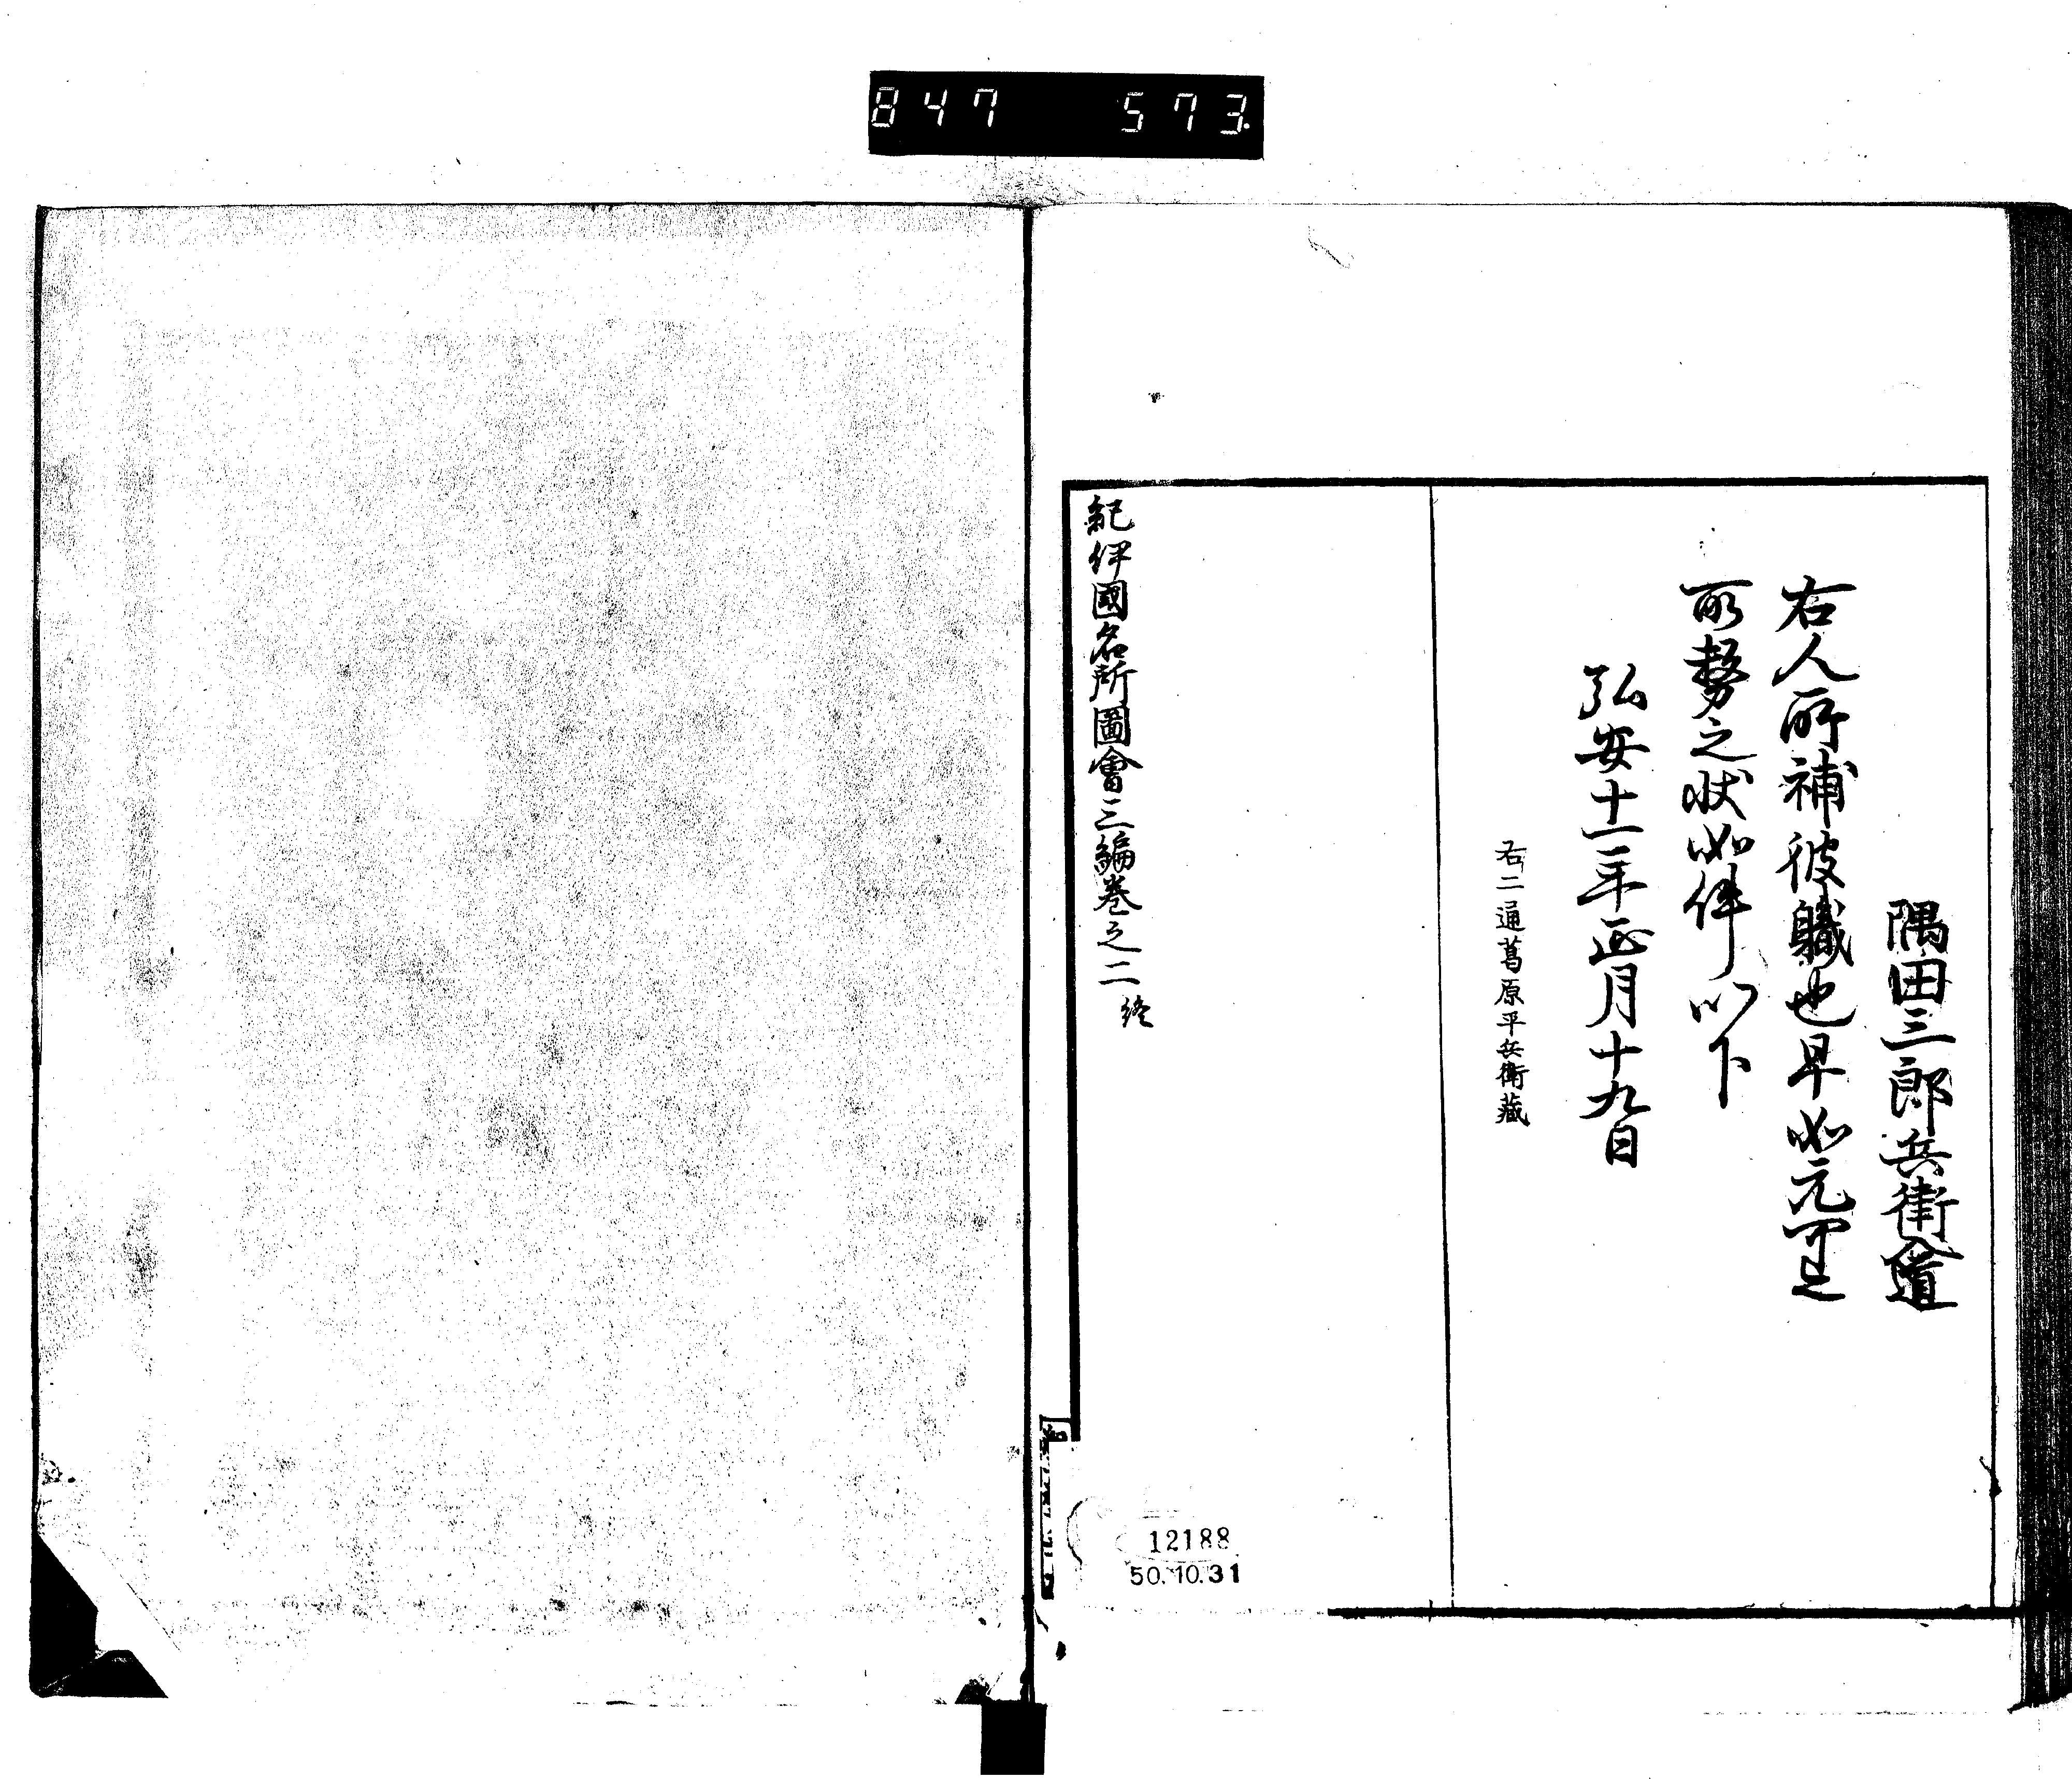 847 573
隅田三郎兵衛入道
右人所補彼職也早如元可
所勢之状如件以下
弘安十一年正月十九日
右二通葛原平兵衛蔵
紀伊國名所圖會三編卷之二 終
12188
50.10.31